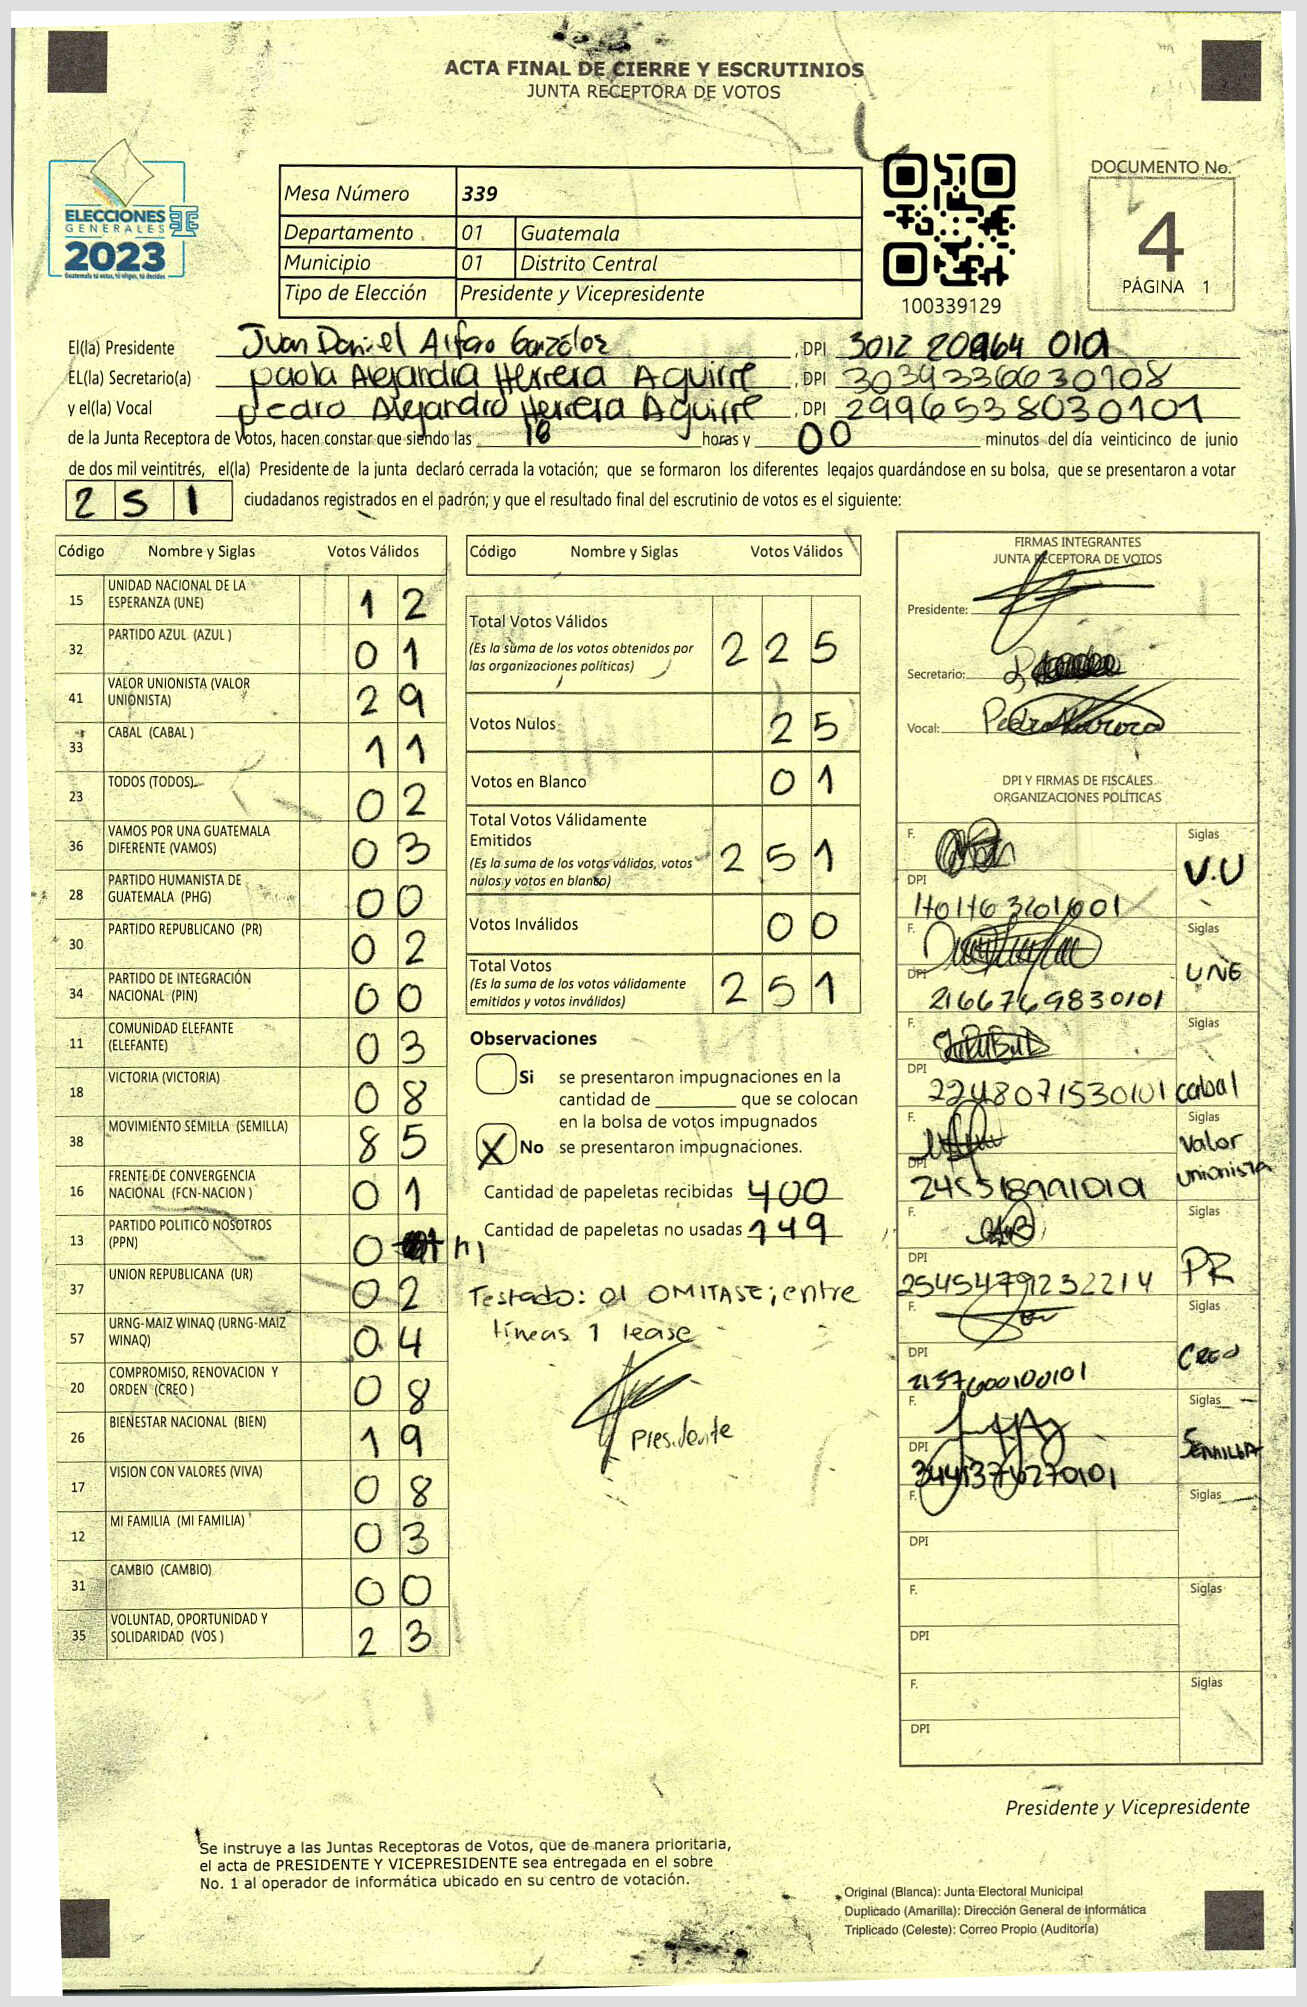 ACTA FINAL DE CIERRE Y ESCRUTINIOS
JUNTA RECEPTORA DE VOTOS
ELECCIONES
GENERALES
2023
Guatemala tú votas, tú eliges, tú decides
Mesa Número 339
Departamento 01 Guatemala
Municipio 01 Distrito Central
Tipo de Elección Presidente y Vicepresidente
100339129
DOCUMENTO No.
4
PÁGINA 1
El(la) Presidente Juan Daniel Alfaro González, DPI 3012 20964 0101
EL(la) Secretario(a) paola Alejandra Herrera Aguirre, DPI 3034336630108
y el(la) Vocal pedro Alejandro Herrera Aguirre, DPI 2996538030101
de la Junta Receptora de Votos, hacen constar que siendo las 18 horas y 00 minutos del día veinticinco de junio
de dos mil veintitrés, el(la) Presidente de la junta declaró cerrada la votación; que se formaron los diferentes legajos guardándose en su bolsa, que se presentaron a votar
251 ciudadanos registrados en el padrón; y que el resultado final del escrutinio de votos es el siguiente:
Código Nombre y Siglas Votos Válidos
15 UNIDAD NACIONAL DE LA ESPERANZA (UNE) 12
32 PARTIDO AZUL (AZUL ) 01
41 VALOR UNIONISTA (VALOR UNIONISTA) 29
33 CABAL (CABAL ) 11
23 TODOS (TODOS) 02
36 VAMOS POR UNA GUATEMALA DIFERENTE (VAMOS) 03
28 PARTIDO HUMANISTA DE GUATEMALA (PHG) 00
30 PARTIDO REPUBLICANO (PR) 02
34 PARTIDO DE INTEGRACIÓN NACIONAL (PIN) 00
11 COMUNIDAD ELEFANTE (ELEFANTE) 03
18 VICTORIA (VICTORIA) 08
38 MOVIMIENTO SEMILLA (SEMILLA) 85
16 FRENTE DE CONVERGENCIA NACIONAL (FCN-NACION ) 01
13 PARTIDO POLITICO NOSOTROS (PPN) 0 1
37 UNION REPUBLICANA (UR) 02
57 URNG-MAIZ WINAQ (URNG-MAIZ WINAQ) 04
20 COMPROMISO, RENOVACION Y ORDEN (CREO ) 08
26 BIENESTAR NACIONAL (BIEN) 19
17 VISION CON VALORES (VIVA) 08
12 MI FAMILIA (MI FAMILIA) 03
31 CAMBIO (CAMBIO) 00
35 VOLUNTAD, OPORTUNIDAD Y SOLIDARIDAD (VOS ) 23
Código Nombre y Siglas Votos Válidos
Total Votos Válidos 225
(Es la suma de los votos obtenidos por
las organizaciones políticas)
Votos Nulos 25
Votos en Blanco 01
Total Votos Válidamente
Emitidos 251
(Es la suma de los votos válidos, votos
nulos y votos en blanco)
Votos Inválidos 00
Total Votos 251
(Es la suma de los votos válidamente
emitidos y votos inválidos)
Observaciones
Si se presentaron impugnaciones en la
cantidad de ________ que se colocan
en la bolsa de votos impugnados
X No se presentaron impugnaciones.
Cantidad de papeletas recibidas 400
Cantidad de papeletas no usadas 149
Testado: 01 OMITASE; entre
líneas 1 lease
Presidente
FIRMAS INTEGRANTES
JUNTA RECEPTORA DE VOTOS
Presidente:
Secretario:
Vocal: Pedro Herrera
DPI Y FIRMAS DE FISCALES
ORGANIZACIONES POLÍTICAS
F. Siglas
V.U
DPI
F. Siglas
UNE
DPI 2166769830101
F. Siglas
cabal
DPI 2248071530101
F. Siglas
Valor
unionista
DPI
F. Siglas
PR
DPI 2545479123 2214
F. Siglas
CREO
DPI 2137600100101
F. Siglas
SEMILLA
DPI
F. Siglas
DPI
F. Siglas
DPI
F. Siglas
DPI
Presidente y Vicepresidente
Se instruye a las Juntas Receptoras de Votos, que de manera prioritaria,
el acta de PRESIDENTE Y VICEPRESIDENTE sea entregada en el sobre
No. 1 al operador de informática ubicado en su centro de votación.
Original (Blanca): Junta Electoral Municipal
Duplicado (Amarilla): Dirección General de Informática
Triplicado (Celeste): Correo Propio (Auditoría)